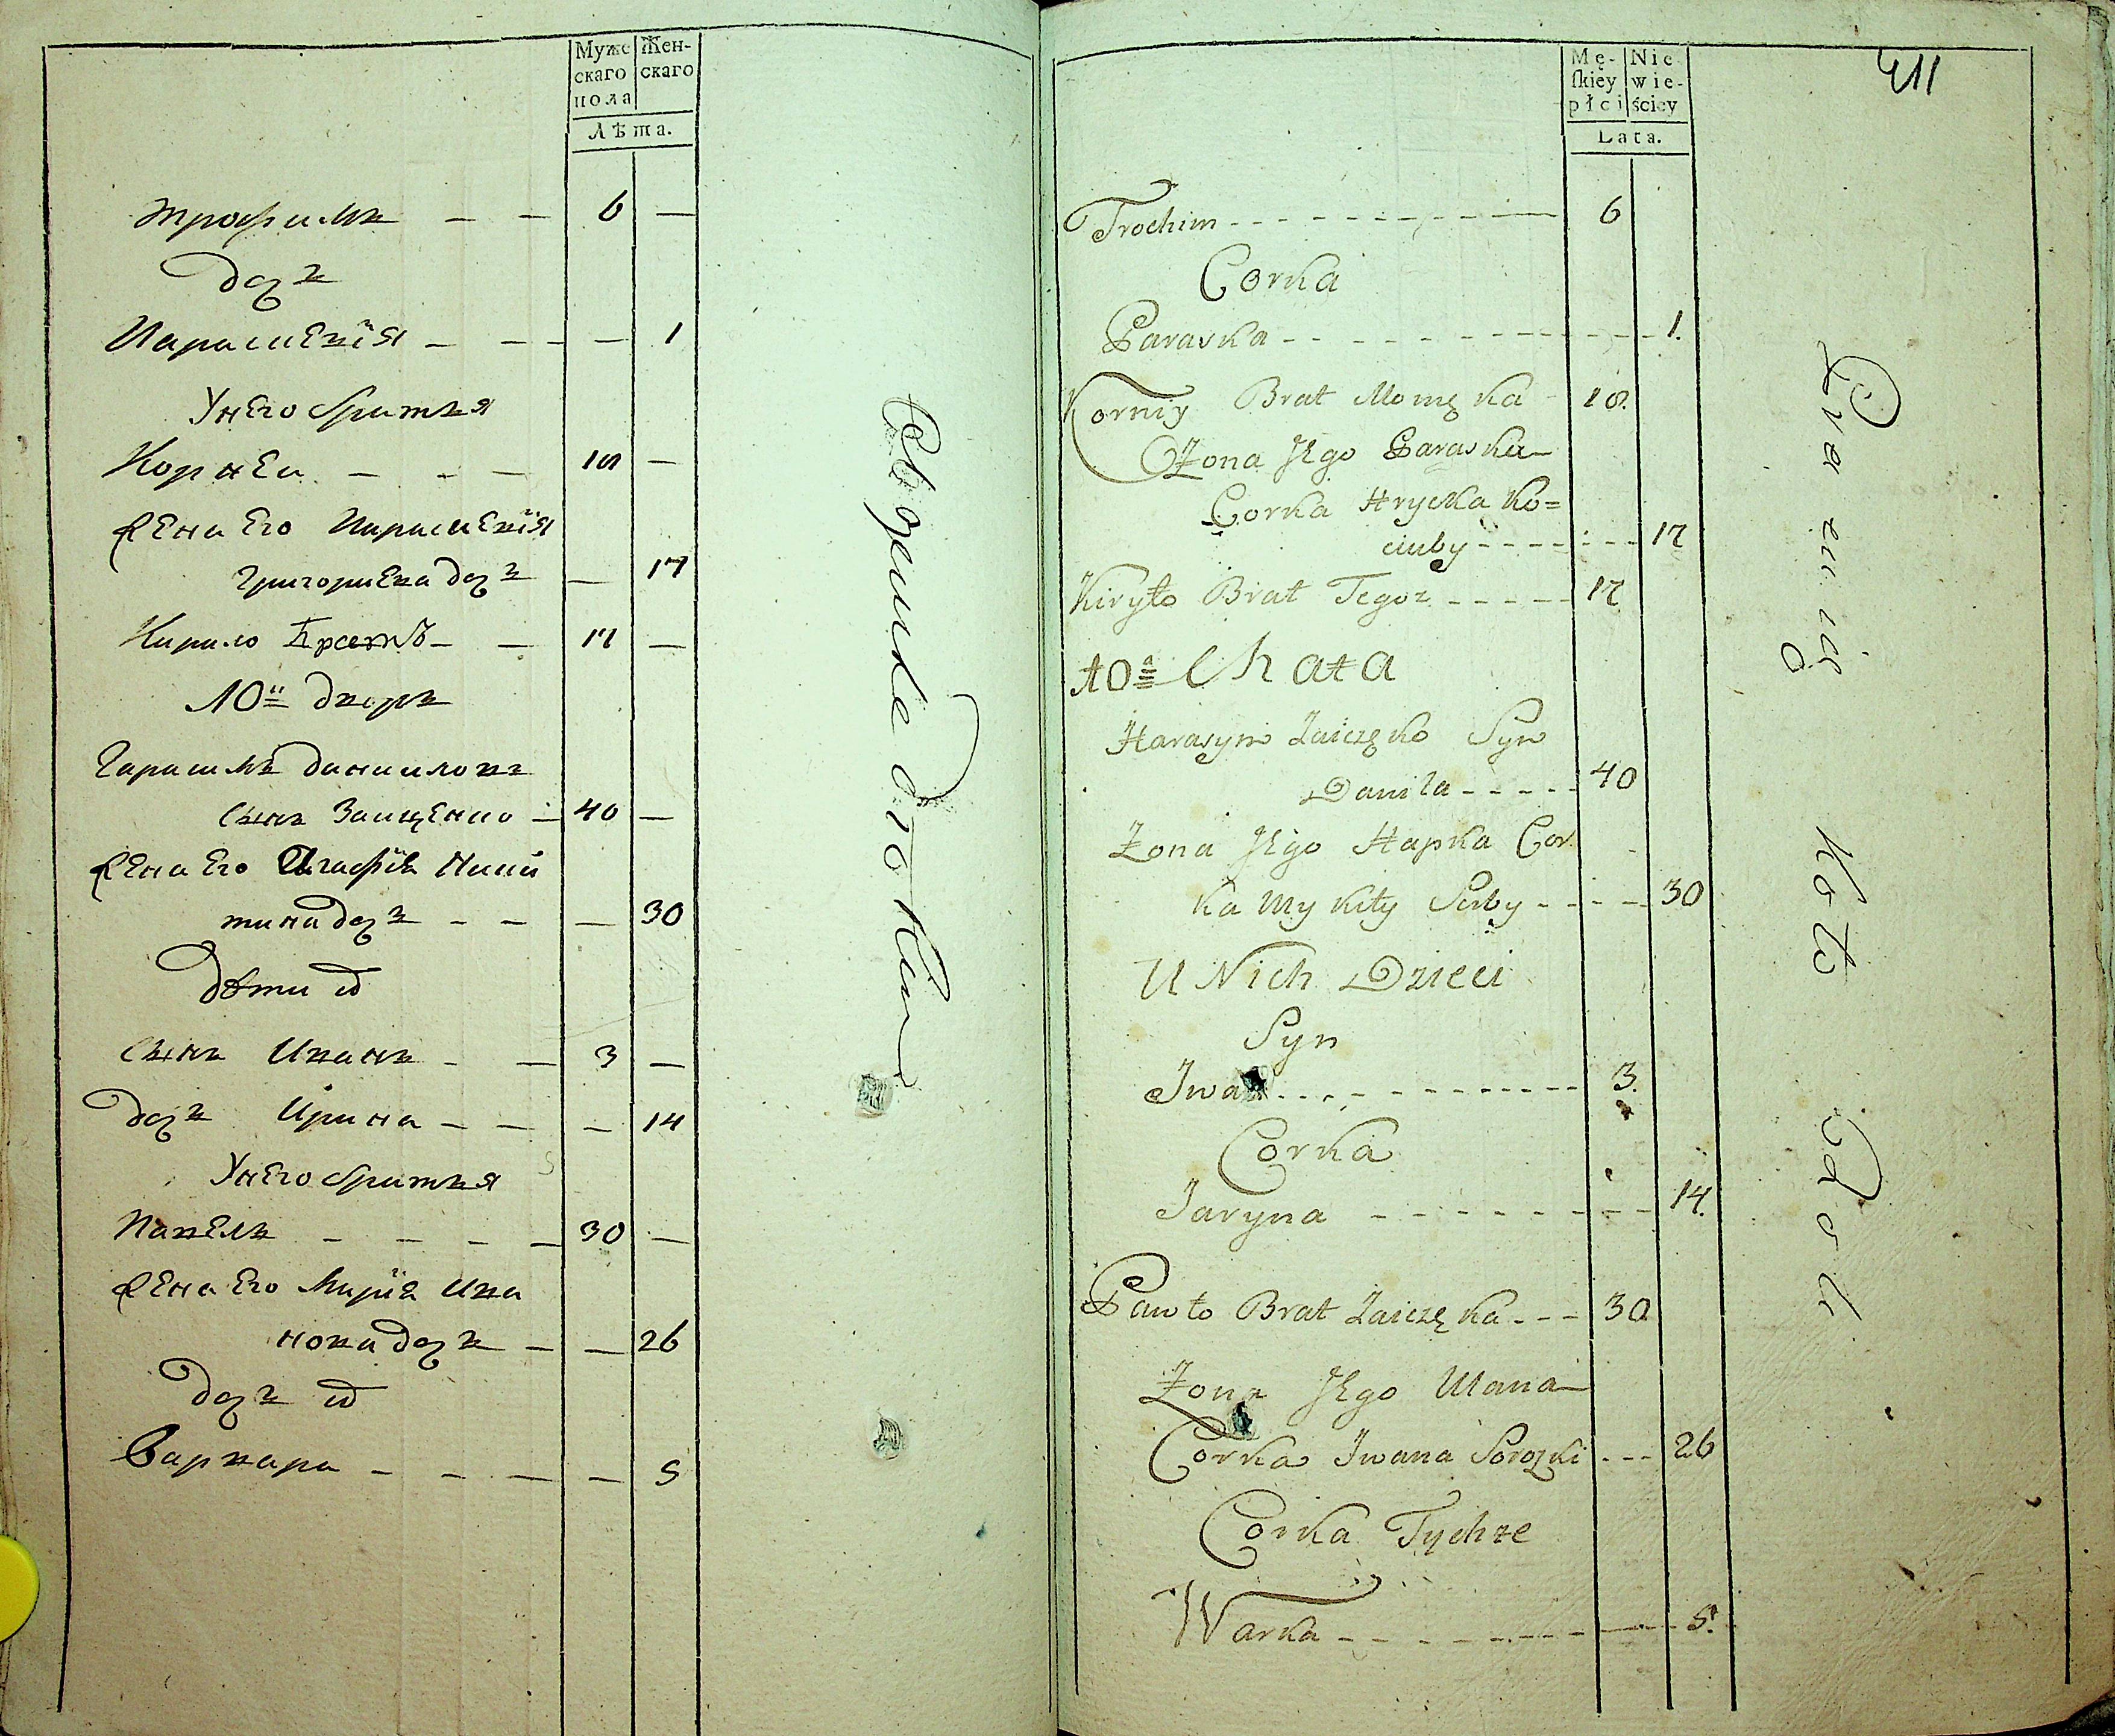 Муже
скаго
пола
Жен-
скаго
Лѣта.
Трофимъ — — 6 —
дочь
Параскевія — — — 1
У него братья
Корней — — — 18 —
Жена его Параскевія
Григориева дочь — 17
Кирило братъ — — 17 —
10й дворъ
Гарасимъ Даниловъ
сынъ Заиченко — 40 —
Жена его Агафія Ники
тина дочь — — — 30
Дѣти их
сынъ Иванъ — — 3 —
дочь Ирина — — — 14
У него братья
Павелъ — — — — 30 —
Жена его Марія Ива
нова дочь — — 26
дочь их
Варвара — — — — 5
Mę-
skiey
płci
Nie
wie-
ściey
Lata.
411
Trochim 6
Corka
Paraska 1.
Korniy Brat Momęka 18.
Żona Jego Paraska
Corka Hrycka Ko=
ciuby 17
Kiryło Brat Tegoz 17
10a Chata
Harasym Zaiczęko Syn
Daniła 40
Żona Jego Hapka Cor
ka Mykity Serby 30
U Nich Dzieci
Syn
Iwan 3.
Corka
Jaryna 14.
Pawło Brat Zaiczęka 30
Żona Jego Mana
Corka Iwana Soroki 26
Corka Tychże
Warka 5.